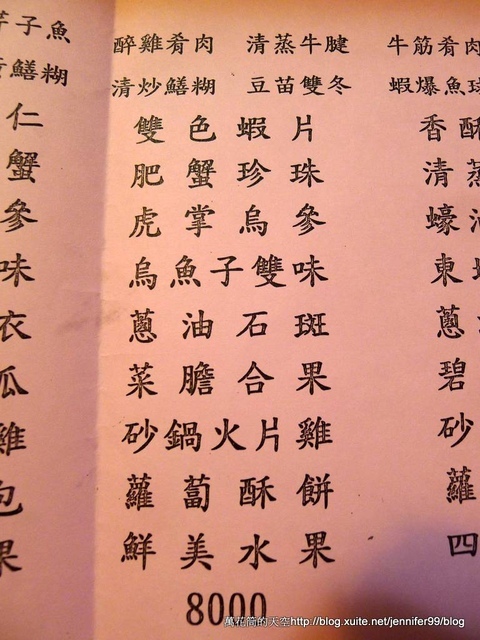 芋子魚
鱔糊
仁
蟹
參
味
衣
瓜
雞
包
果
醉雞肴肉 清蒸牛腱
清炒鱔糊 豆苗雙冬
雙色蝦片
肥蟹珍珠
虎掌烏參
烏魚子雙味
蔥油石斑
菜膽合果
砂鍋火片雞
蘿蔔酥餅
鮮美水果
8000
牛筋肴肉
蝦爆魚球
香酥
清蒸
蠔油
東
蔥
碧
砂
蘿
四
萬花筒的天空http://blog.xuite.net/jennifer99/blog